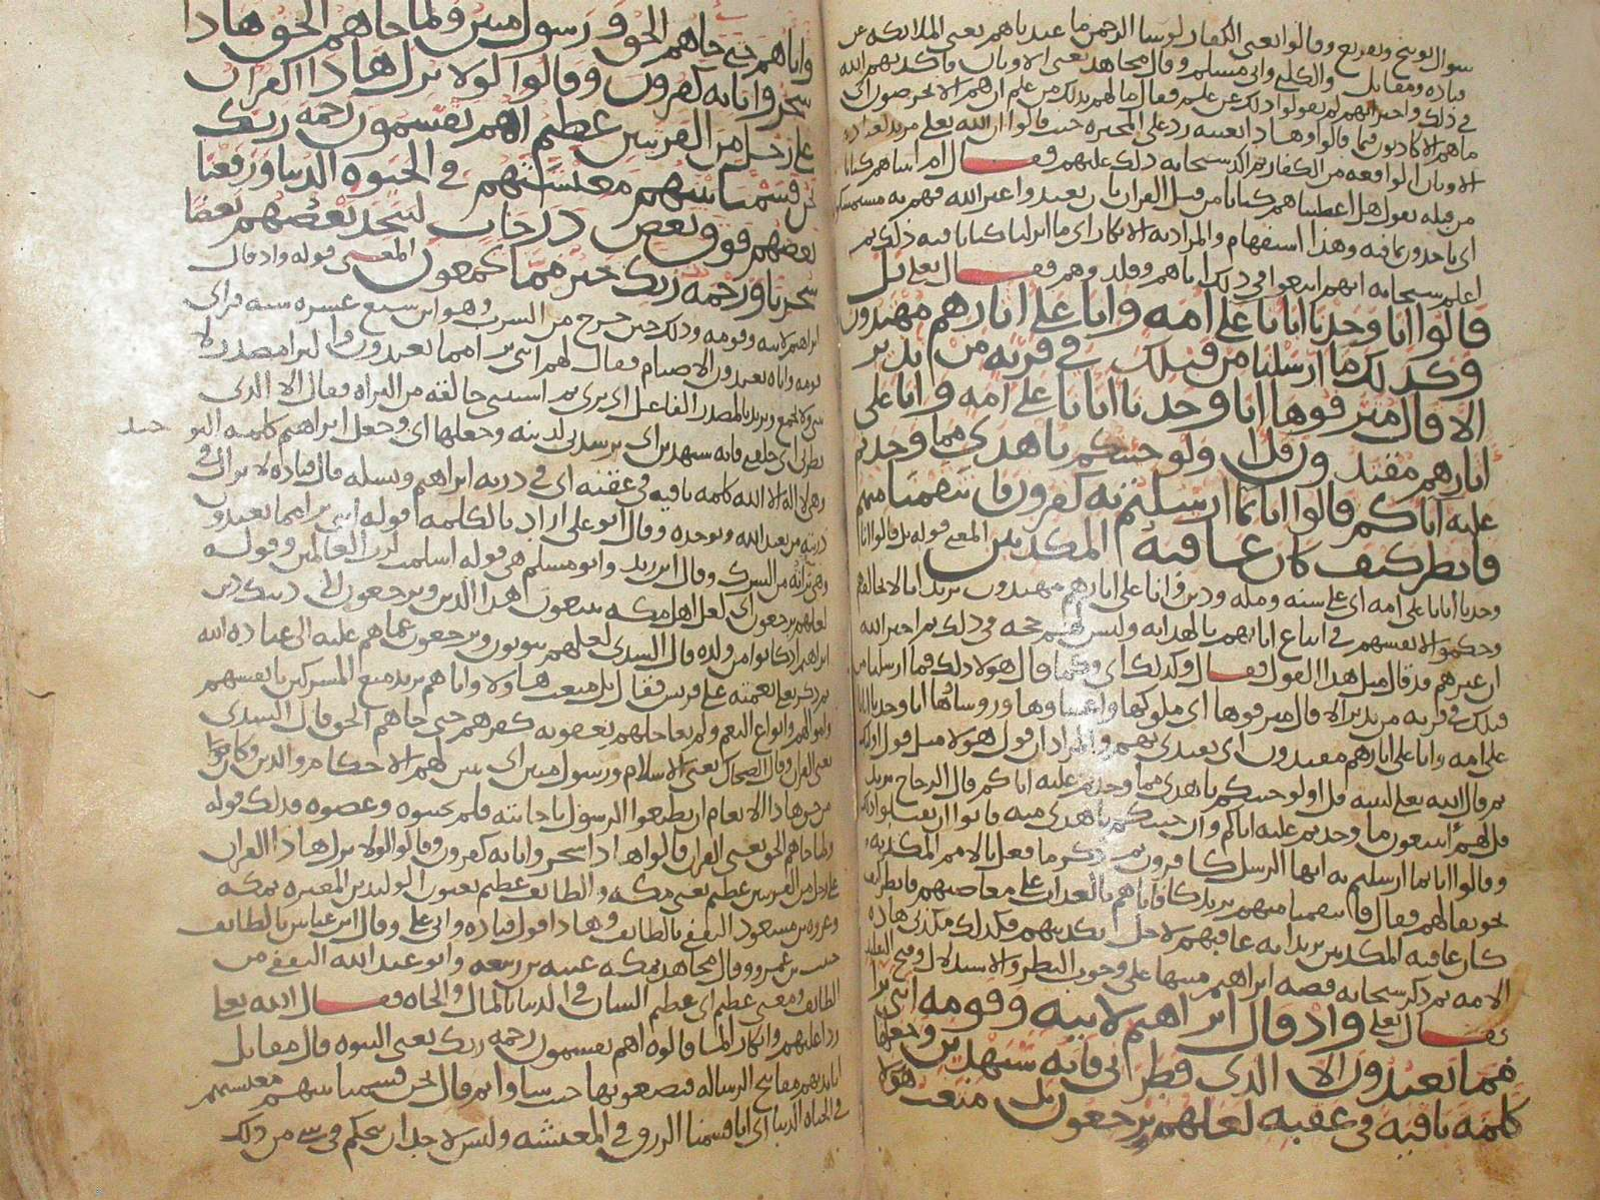 سؤال توبيخ وتقريع وقالوا يعني الكفار لو شا الرحمن ما عبدناهم يعني الملائكة عن
قتادة ومقاتل والكلبي وابي مسلم وقال مجاهد يعني الاوثان فاكذبهم الله
في ذلك واخبر انهم لم يقولوا ذلك عن علم فقال ما لهم بذلك من علم ان هم الا يخرصون اي
ما هم الا كاذبون فيما قالوا وهذا بعينه رد على المجبرة حيث قالوا ان الله تعلى مريد لعبادة
الاوثان الواقعة من الكفار ثم اكد سبحانه ذلك عليهم فقال ام اتيناهم كتابا
من قبله يقول هل اعطيناهم كتابا من قبل القران بان يعبدوا غير الله فهم به مستمسكون
اي ياخذون بما فيه وهذا استفهام والمراد به الانكار اي ما انزلنا كتابا فيه ذلك ثم
اعلم سبحانه انهم اتبعوا في ذلك اباهم وقلدوهم فقال تعلى بل
قالوا انا وجدنا ابانا على امه وانا على اثارهم مهتدون
وكذلك ما ارسلنا من قبلك في قرية من نذير
الا قال مترفوها انا وجدنا ابانا على امه وانا على
اثارهم مقتدون قل اولو جئتكم باهدى مما وجدتم
عليه اباكم قالوا انا بما ارسلتم به كفرون فانتقمنا منهم
فانظر كيف كان عاقبة المكذبين المعنى قوله بل قالوا انا
وجدنا ابانا على امه اي على سنه ومله ودين وانا على اثارهم مهتدون نريد انا لا نخالفهم
وحكموا لانفسهم في اتباع ابايهم بالهداية وليس لهم حجه في ذلك ثم اخبر الله
ان غيرهم قد قال مثل هذا القول فقال وكذلك اي وكما قال هولا ذلك فما ارسلنا من
قبلك في قرية من نذير الا قال مترفوها اي ملوكها واغنياوها وروساوها انا وجدنا ابانا
على امه وانا على اثارهم مقتدون اي نقتدي بهم والمراد ان قول هولا مثل قول اولئك
ثم قال الله تعلى لنبيه قل اولو جئتكم باهدى مما وجدتم عليه اباكم قال الزجاج يريد
قل لهم اتتبعون ما وجدتم عليه اباكم وان جئتكم باهدى منه فابوا ان يقبلوا ذلك
وقالوا انا بما ارسلتم به ايها الرسل كافرون ثم ذكر ما فعل بالامم المكذبة
تخويفا لهم فقال فانتقمنا منهم يريد كافاناهم بالعذاب على معاصيهم فانظر كيف
كان عاقبة المكذبين يريد انه عاقبهم لاجل تكذيبهم فكذلك مكذبي هذه
الامه ثم ذكر سبحانه قصة ابراهيم منبها على وجوب النظر والاستدلال وقبح التقليد
فقال تعلى واذ قال ابراهيم لابيه وقومه انني برا
مما تعبدون الا الذي فطرني فانه سيهدين وجعلها
كلمة باقية في عقبه لعلهم يرجعون بل متعت هولا
واباهم حتى جاهم الحق ورسول مبين ولما جاهم الحق هاذا
سحر وانا به كفرون وقالوا لولا نزل هاذا القران
على رجل من القريتين عظيم اهم يقسمون رحمة ربك
نحن قسمنا بينهم معيشتهم في الحيوة الدنيا ورفعنا
بعضهم فوق بعض درجات ليتخذ بعضهم بعضا
سخريا ورحمة ربك خير مما يجمعون المعنى قوله واذ قال
ابراهيم لابيه وقومه وذلك حين خرج من السرب وهو ابن سبع عشرة سنه فراى
قومه واباه يعبدون الاصنام فقال لهم انني برا مما تعبدون والبرا مصدر لا
يثنى ولا يجمع ويريد بالمصدر الفاعل اي بري ثم استثنى خالقه من البراه فقال الا الذي
فطرني اي خلقني فانه سيهدين اي يرشدني لدينه وجعلها اي وجعل ابراهيم كلمة التو
حيد
وهي لا اله الا الله كلمة باقية في عقبه اي في ذرية ابراهيم ونسله قال قتاده لا يزال في
ذريته من يعبد الله ويوحده وقال ابو علي اراد بالكلمة قوله انني برا مما تعبدون
وهي براه من الشرك وقال ابن زيد وابو مسلم هي قوله اسلمت لرب العالمين وقوله
لعلهم يرجعون اي لعل اهل مكه يتبعون هذا الدين ويرجعون الى دينك دين
ابراهيم اذ كانوا من ولده قال السدي لعلهم يتوبون ويرجعون عما هم عليه الى عبادة الله
ثم ذكر تعلى نعمته على قريش فقال بل متعت هاولا واباهم يريد متع المشركين بانفسهم
واموالهم وانواع النعم ولم يعاجلهم بعقوبة كفرهم حتى جاهم الحق قال السدي
يعني القران وقال الضحاك يعني الاسلام ورسول مبين اي يبين لهم الاحكام والدين وكان
من حق هاذا الانعام ان يطيعوا الرسول باجابته فلم يجيبوه وعصوه فذلك قوله
ولما جاهم الحق يعني القران قالوا هاذا سحر وانا به كفرون وقالوا لولا نزل هاذا القران
على رجل من القريتين عظيم يعني مكه والطائف عظيم يعنون الوليد بن المغيرة بمكه
وعروه بن مسعود الثقفي بالطائف وهاذا قول قتاده وابي علي وقال ابن عباس بالطائف
حبيب بن عمرو وقال مجاهد بمكه عتبه بن ربيعه وابو عبد الله الثقفي من
الطائف ومعنى عظيم اي عظيم الشان في الدنيا بالمال والجاه فقال الله تعلى
ردا عليهم وانكارا لما قالوه اهم يقسمون رحمة ربك يعني النبوه قال مقاتل
ابايديهم مفاتيح الرساله فيضعونها حيث شاوا ثم قال نحن قسمنا بينهم معيشتهم
في الحياة الدنيا اي انا قسمنا الرزق في المعيشه وليس لاحد ان يتحكم في شي من ذلك